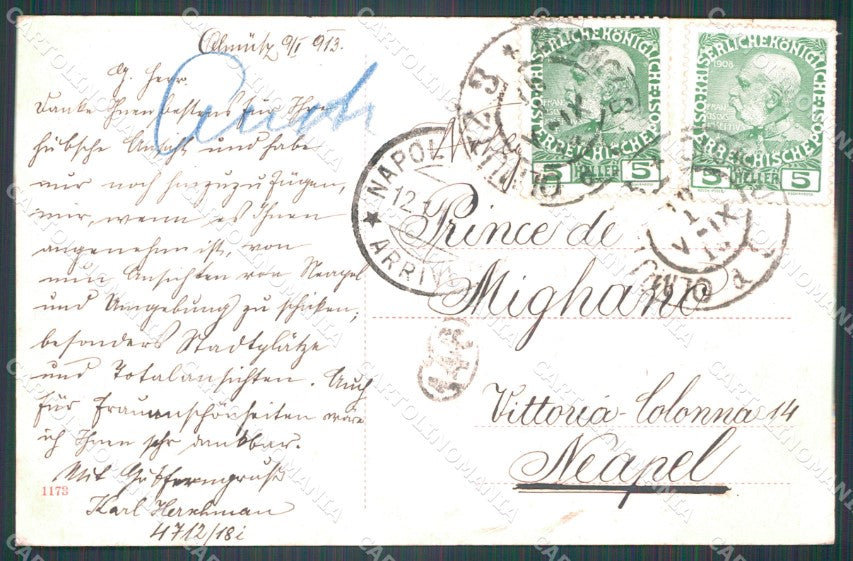 Olmütz 9/I 913.
G. Herr
Danke Ihnen bestens für Ihre
hübsche Ansicht und habe
nur noch hinzuzufügen,
mir, wenn es Ihnen
angenehm ist, von
nun Ansichten von Neapel
und Umgebung zu schicken,
besonders Stadtplätze
und Totalansichten. Auch
für Frauenschönheiten wäre
ich Ihnen sehr dankbar.
Mit Gutferngruß
Karl
4712/18i
1173
KAISERLICHE KÖNIGLICHE
ÖSTERREICHISCHE POST
5 HELLER 5
1908
KAISERLICHE KÖNIGLICHE
ÖSTERREICHISCHE POST
5 HELLER 5
NAPOLI
12.1
ARRIVI
Prince de
Mighano
Vittoria-Colonna 14
Neapel
CARTOLINOMANIA